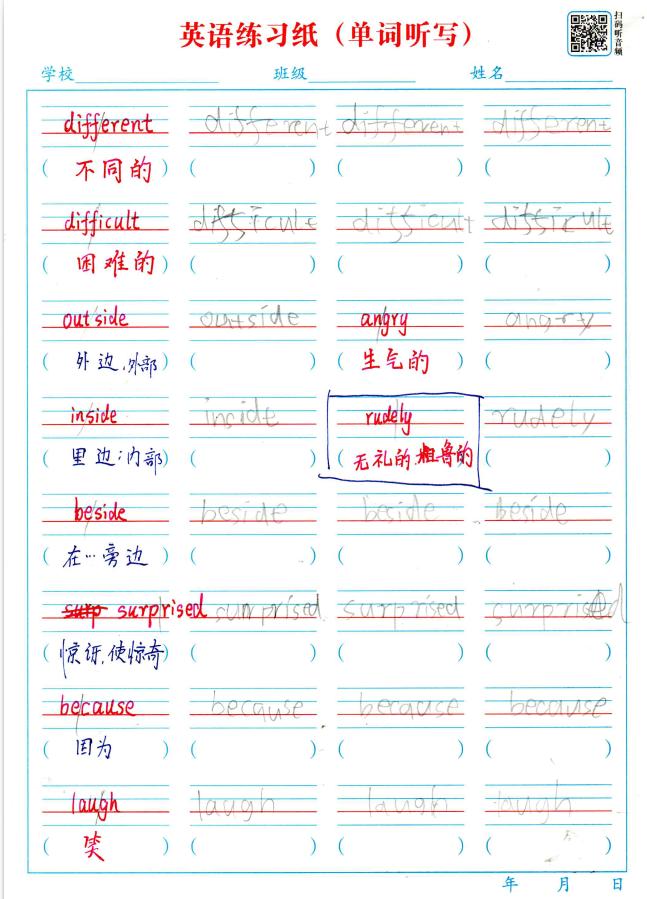 英语练习纸（单词听写）
扫码听音频
学校 班级 姓名
different different different different
( 不同的 ) ( ) ( ) ( )
difficult difficult difficult difficult
( 困难的 ) ( ) ( ) ( )
outside outside angry angry
( 外边,外部 ) ( ) ( 生气的 ) ( )
inside inside rudely rudely
( 里边;内部 ) ( ) ( 无礼的,粗鲁的 ( )
beside beside beside beside
( 在…旁边 ) ( ) ( ) ( )
surprised surprised surprised
( 惊讶,使惊奇 ) ( ) ( ) ( )
because because because because
( 因为 ) ( ) ( ) ( )
laugh laugh laugh laugh
( 笑 ) ( ) ( ) ( )
年 月 日